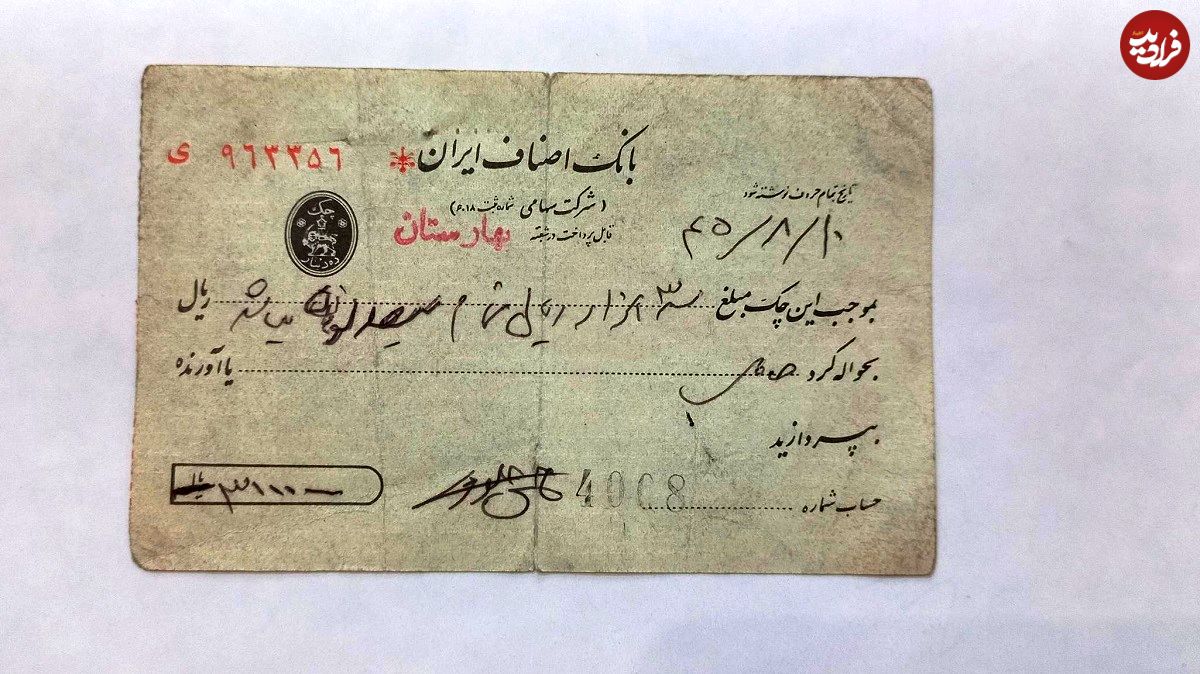 فرادید
بانک اصناف ایران
ی ۹۶۳۳۵۶
(شرکت سهامی شماره ثبت ۶۰۱۸)
تاریخ تمام حروف نوشته شود
قابل پرداخت در شعبه بهارستان
۴۵/۸/۱۰
چک
ده دینار
بموجب این چک مبلغ هزار ریال تمام میباشد ریال
بحواله کرد یا آورنده
بپردازید
حساب شماره 4008
ریال